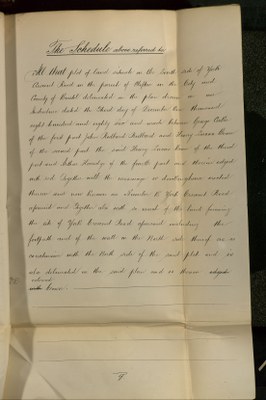 The Schedule above referred to
All that plot of land situate on the South side of York
Crescent Road in the parish of Clifton in the City and
County of Bristol delineated in the plan drawn on an
Indenture dated the Third day of December One thousand
eight hundred and eighty one and made between George
of the first part John Holland Holland and Henry
of the second part the said Henry of the third
part and Arthur of the fourth part and therein edged
with red Together with the messuage or dwellinghouse erected
thereon and now known as Number 15 York Crescent Road
aforesaid and Together also with so much of the land forming
the site of York Crescent Road aforesaid including the
footpath and of the walk on the North side thereof as is
coextensive with the North side of the said plot and is
also delineated in the said plan and is thereon
colored
brown
9